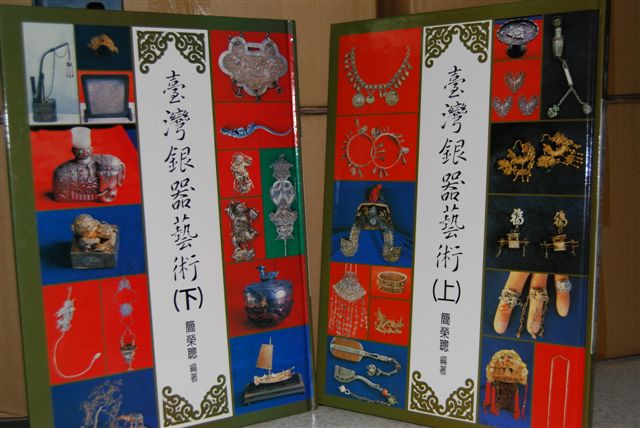 臺灣銀器藝術(下)
簡榮聰 編著
臺灣銀器藝術(上)
簡榮聰 編著